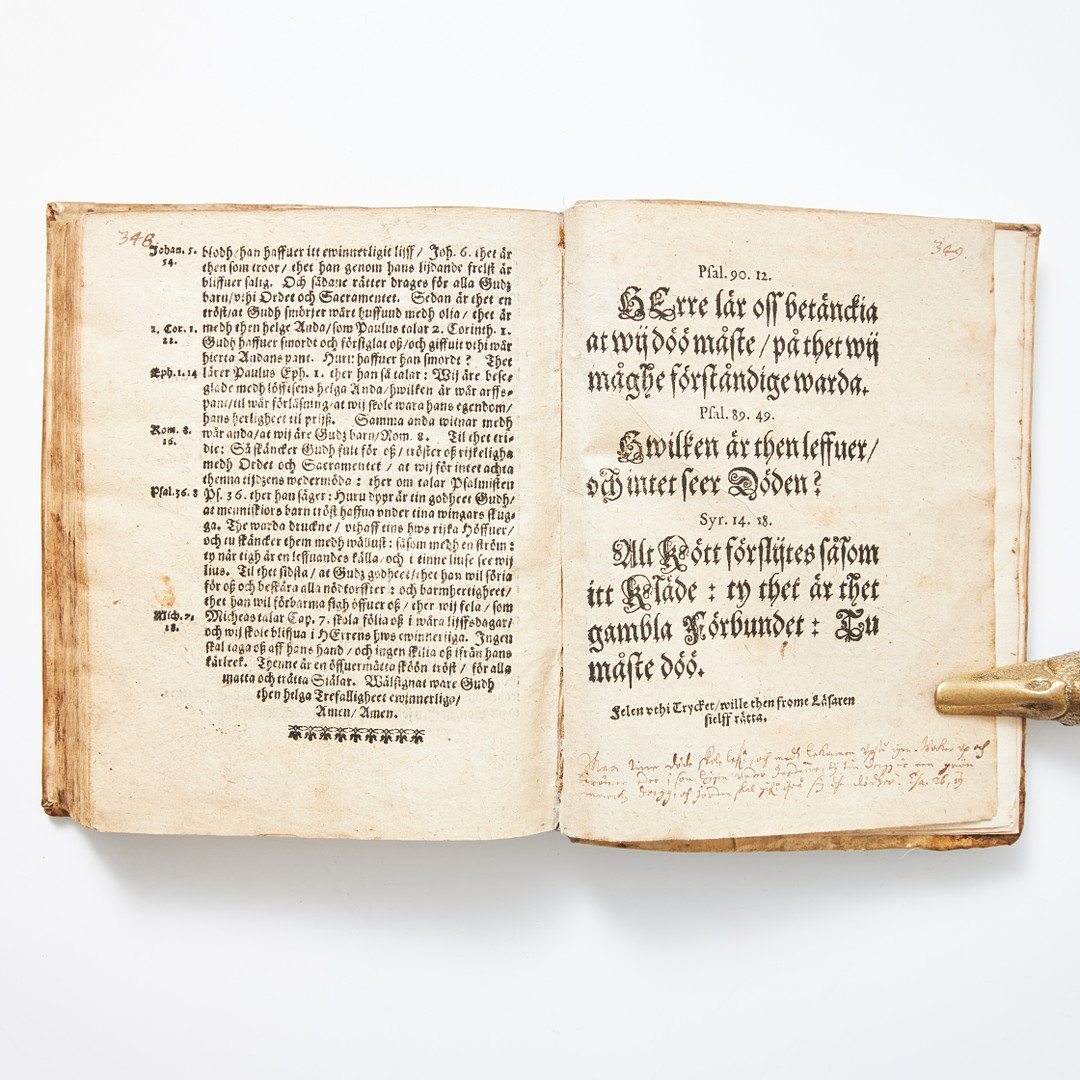 348.
Johan. 5. 54.
blodh/han haffuer itt ewinnerligit lijff/ Joh. 6. thet är
then som troor/ thet han genom hans lijdande frelst är
bliffuer salig. Och sådane rätter drages för alla Gudz
barn/vthi Ordet och Sacramentet. Sedan är thet en
tröst/at Gudh smörjer wårt huffund medh olia/ thet är
2. Cor. 1. 22.
medh then helge Anda/som Paulus talar 2. Corinth. 1.
Gudh haffuer smordt och förseglat oß/och giffuit vthi wår
hierta Andans pant. Huru haffuer han smordt? Thet
Eph. 1. 14
lärer Paulus Eph. 1. ther han så talar: Wij äre bese-
glade medh löfftisens helga Anda/hwilken är wår arffs-
pant/til wår förläsning/at wij skole wara hans egendom/
hans herligheet til prijß. Samma anda witnar medh
Rom. 8. 16.
wår anda/at wij äre Gudz barn/Rom. 8. Til thet tri-
die: Så skäncker Gudh fult för oß/ tröster oß rijkelighe
medh Ordet och Sacramentet/ at wij för intet achta
thenna tijdzens wedermöda: ther om talar Psalmisten
Psal. 36. 8
Ps. 36. ther han säger: Huru dyyr är tin godheet Gudh/
at menniskiors barn tröst haffua vnder tina wingars skug-
ga. The warda druckne/ vthaff tins hws rijka Höffuer/
och tu skäncker them medh wällust: såsom medh en ström:
ty när tigh är en leffuandes källa/och i tinne liuse see wij
lius. Til thet sidsta/ at Gudz godheet/thet han wil söria
för oß och beskära alla nödtorffter: och barmhertigheet/
thet han wil förbarma sigh öffuer oß/ ther wij fela/ som
Mich. 7. 18.
Micheas talar Cap. 7. skola fölia oß i wåra lijffsdagar/
och wij skole bliffua i HErrens hws ewinnerliga. Ingen
skal taga oß aff hans hand/och ingen skilia oß ifrån hans
kärleek. Thenne är en öffuermåtta sköön tröst/ för alla
matta och trötta Siälar. Wälsignat ware Gudh
then helga Trefalligheet ewinnerliga/
Amen/Amen.
349.
Psal. 90. 12.
HErre lär oss betänckia
at wij döö måste/på thet wij
måghe förståndige warda.
Psal. 89. 49.
Hwilken är then leffuer/
och intet seer Döden?
Syr. 14. 18.
Alt Kött förslijtes såsom
itt Kläde: ty thet är thet
gambla Förbundet: Tu
måste döö.
Felen vthi Trycket/wille then frome Läsaren
sielff rätta.
Men tine döde skole leffa och medh lekamen vpstå igen. Waker vp och
berömer ty tin dogg är een grön
dogg, och jorden skal Esa. 26, 19